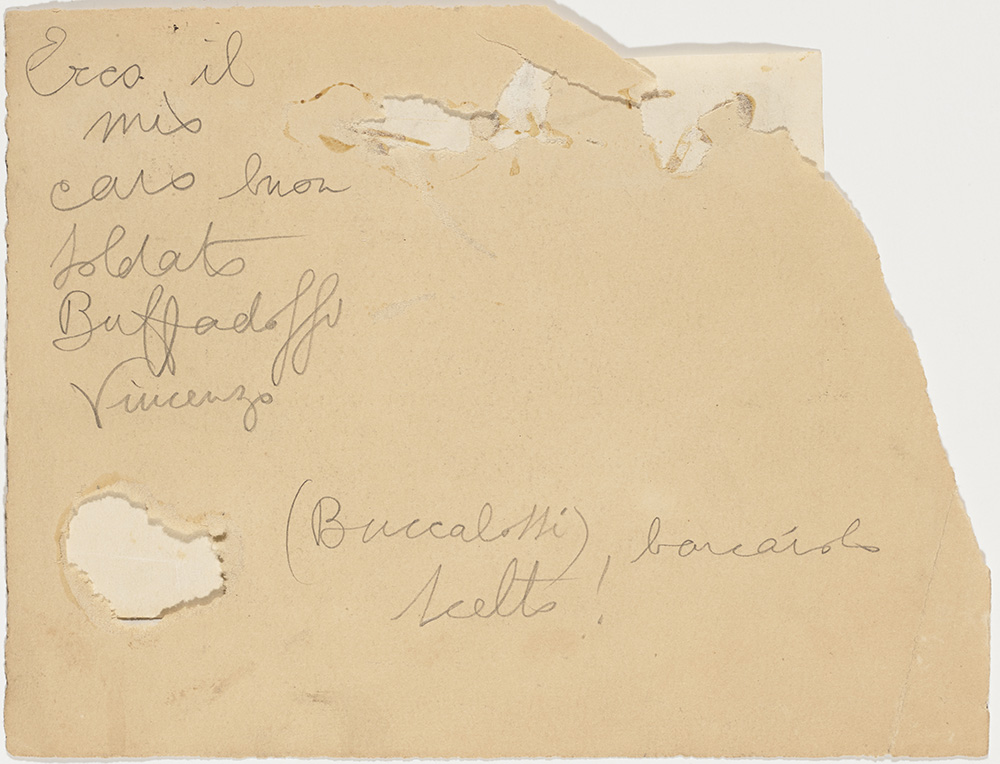 Ecco il
mio
caro buon
soldato
Buffadoffi
Vincenzo
(Buccalossi) barcárolo
scelto!